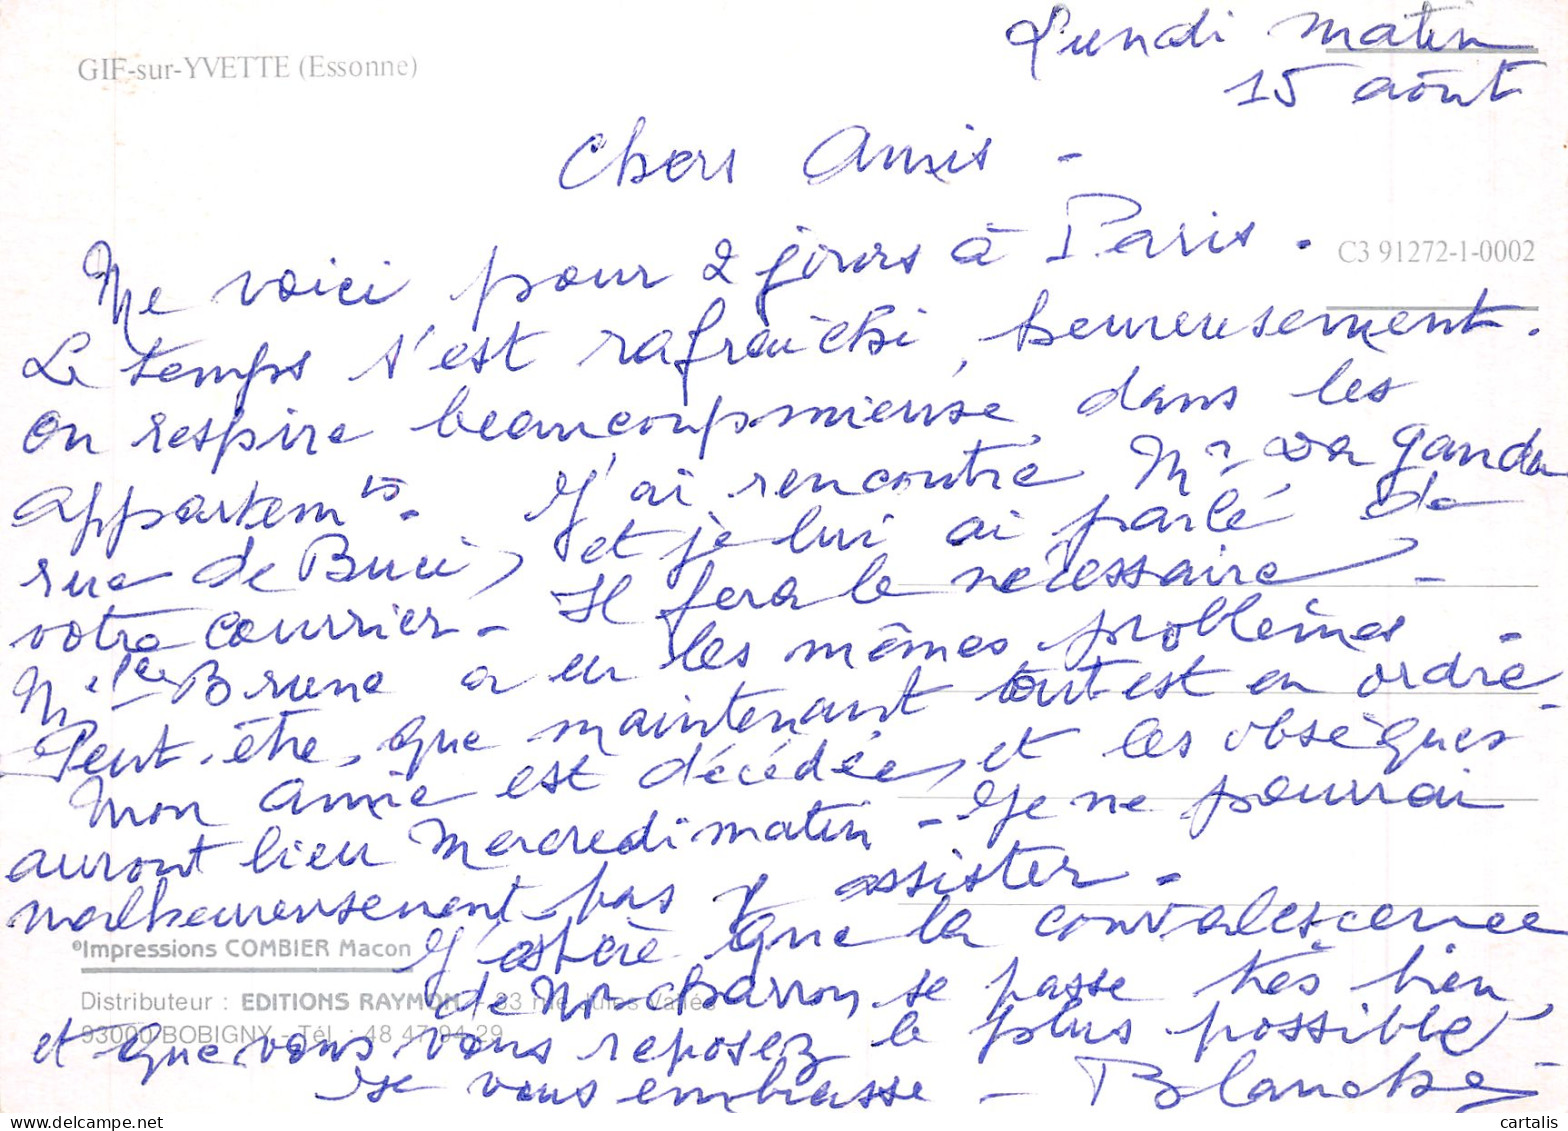 GIF-sur-YVETTE (Essonne)
Lundi matin
15 août
Chers Amis -
C3 91272-1-0002
Me voici pour 2 jours à Paris.
Le temps s'est rafraîchi, heureusement.
On respire beaucoup mieux dans les
appartem ts. J'ai rencontré Mr Da Ganda
rue de Buci, et je lui ai parlé de
votre courrier - Il fera le nécessaire -
Melle Brune a eu les mêmes problèmes -
Peut-être, que maintenant tout est en ordre -
Mon amie est décédée, et les obsèques
auront lieu Mercredi matin - Je ne pourrai
malheureusement pas y assister.
J'espère que la convalescence
de Mr Charron, se passe très bien,
et que vous vous reposez le plus possible -
Je vous embrasse - Blanche
©Impressions COMBIER Macon
Distributeur : EDITIONS RAYMON - 83 rue Jules Vallès
93000 BOBIGNY - Tél. : 48 47 94 29
www.delcampe.net
cartalis